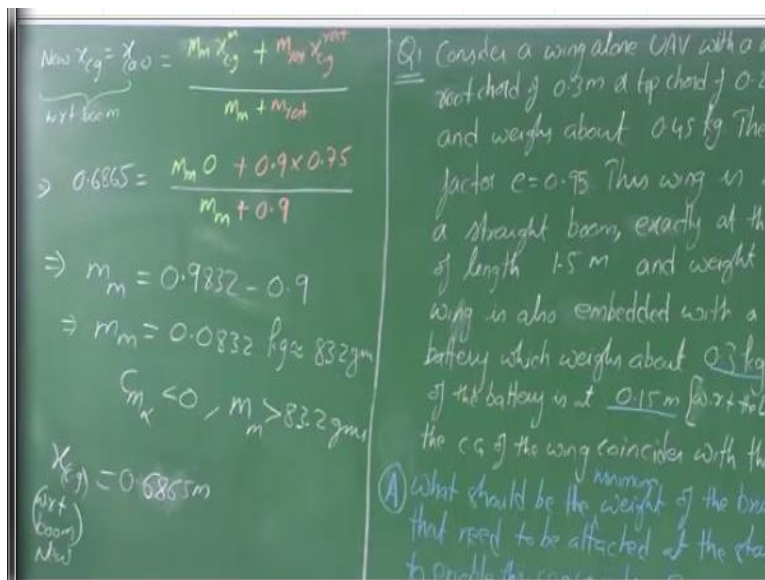 New x_cg = x_ao = (m_m x_cg^m + m_rest x_cg^rest) / (m_m + m_rest)
wrt boom
⇒ 0.6865 = (m_m 0 + 0.9 × 0.75) / (m_m + 0.9)
⇒ m_m = 0.9832 - 0.9
⇒ m_m = 0.0832 kg ≈ 832gm
C_mα < 0, m_m > 83.2 gms
x_cg = 0.6865m
(wrt boom)
New
Q1 Consider a wing alone UAV with a
root chord of 0.3m & tip chord of 0.2
and weighs about 0.45 kg. The
factor e = 0.95. This wing is
a straight boom, exactly at the
of length 1.5 m and weight
wing is also embedded with a
battery which weighs about 0.3 kg
of the battery is at 0.15m [w.r.t
the CG of the wing coincides with the
(A) What should be the minimum weight of the
that need to be attached at the
to